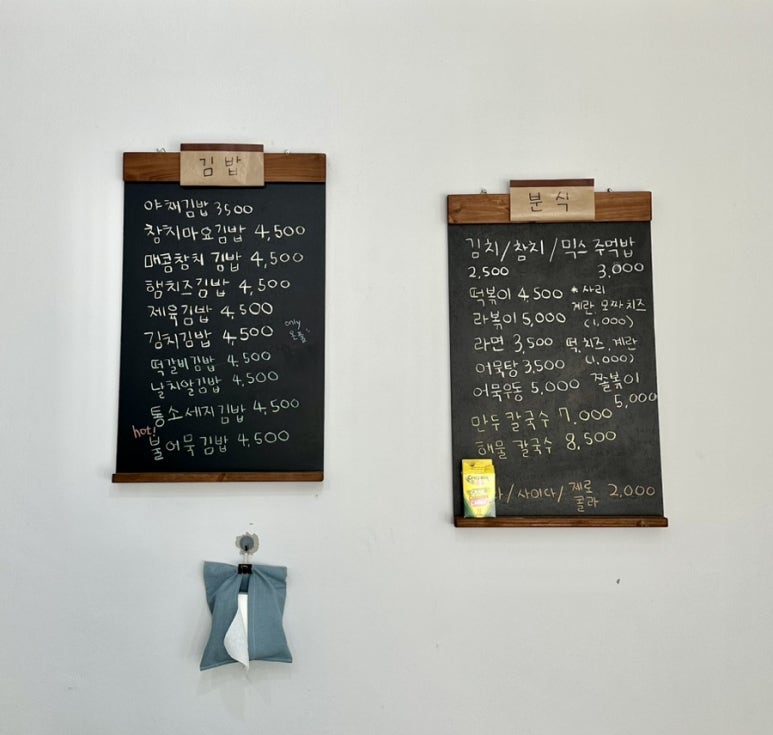 김밥
야채김밥 3500
참치마요김밥 4,500
매콤참치 김밥 4,500
햄치즈김밥 4,500
제육김밥 4,500
김치김밥 4,500
only
떡갈비김밥 4,500
날치알김밥 4,500
통소세지김밥 4,500
hot!
불어묵김밥 4,500
분식
김치/참치/믹스 주먹밥
2,500 3,000
떡볶이 4,500 *사리
계란, 모짜치즈
(1,000)
라볶이 5,000
라면 3,500 떡, 치즈, 계란
(1,000)
어묵탕 3,500
어묵우동 5,000 쫄볶이
5,000
만두 칼국수 7,000
해물 칼국수 8,500
/사이다/제로
콜라 2,000